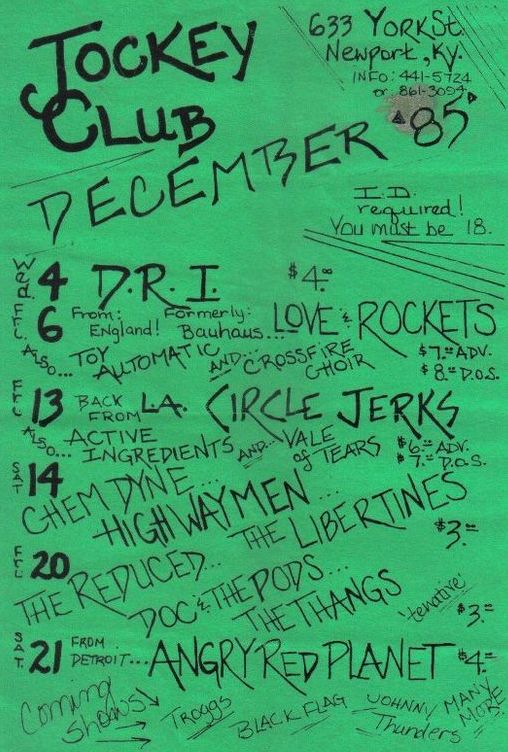 JOCKEY
CLUB
633 YORK St.
Newport, Ky.
INFO: 441-5724
or 861-3094
DECEMBER '85
I.D.
required!
You must be 18.
Wed. 4 D.R.I. $4.00
Fri. 6 From: England! Formerly: Bauhaus... LOVE & ROCKETS
ALSO... TOY AUTOMATIC AND... CROSSFIRE CHOIR
$7.00 ADV.
$8.00 D.O.S.
Fri. 13 BACK FROM L.A. CIRCLE JERKS
ALSO... ACTIVE INGREDIENTS AND... VALE of TEARS
$6.00 ADV.
$7.00 D.O.S.
SAT 14
CHEM DYNE...
HIGHWAYMEN...
THE LIBERTINES
$3.00
Fri. 20
THE REDUCED...
DOC & THE PODS...
THE THANGS
'tenative'
$3.00
SAT. 21 FROM DETROIT... ANGRY RED PLANET $4.00
Coming Shows:
Troggs
BLACK FLAG
JOHNNY Thunders
MANY MORE